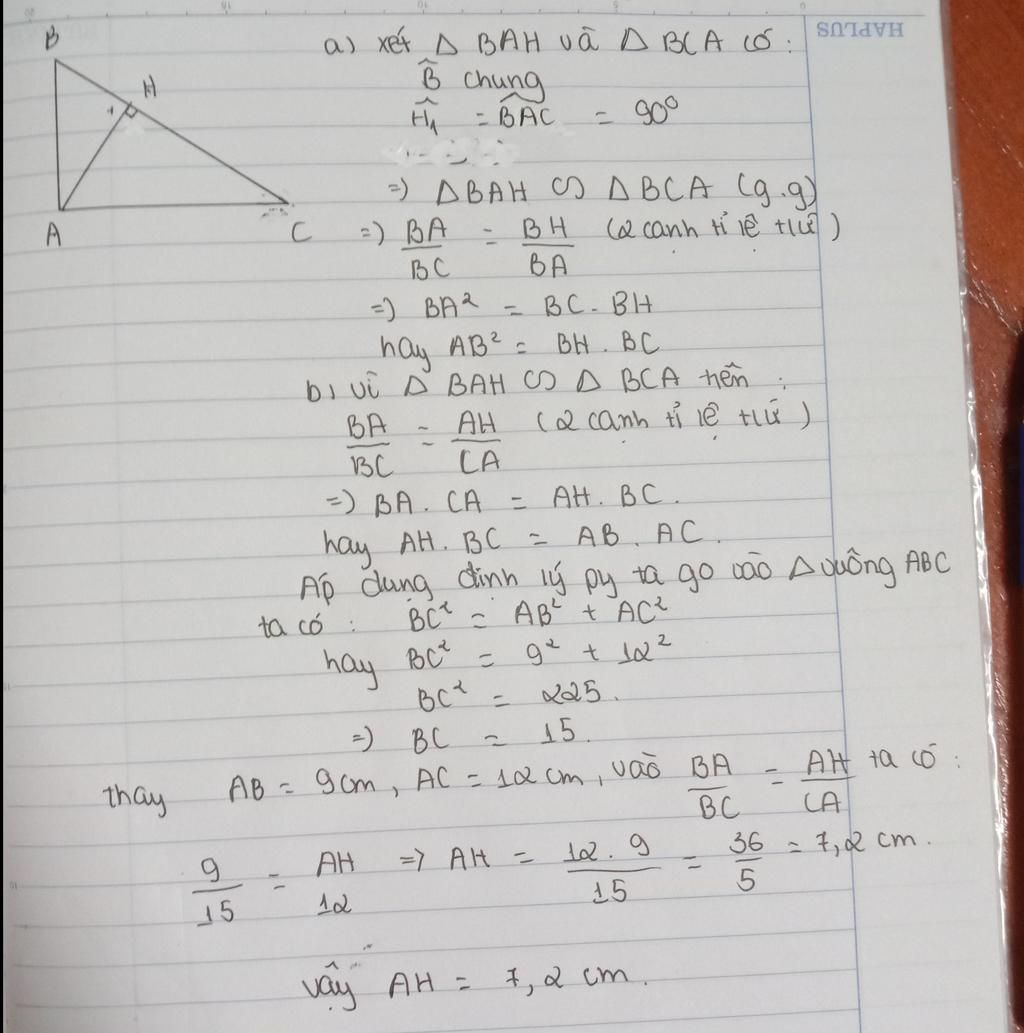 HAPLUS
B
H
1
A
C
a) xét Δ BAH và Δ BCA có :
B̂ chung
Ĥ₁ = B̂AC = 90°
=) ΔBAH ∽ ΔBCA (g.g)
=) BA/BC = BH/BA (2 cạnh tỉ lệ tứ)
=) BA² = BC . BH
hay AB² = BH . BC
b, vì Δ BAH ∽ Δ BCA nên :
BA/BC = AH/CA (2 cạnh tỉ lệ tứ)
=) BA . CA = AH . BC .
hay AH . BC = AB . AC .
Áp dụng định lý py ta go vào Δ vuông ABC
ta có : BC² = AB² + AC²
hay BC² = 9² + 12²
BC² = 225 .
=) BC = 15 .
thay AB = 9cm , AC = 12 cm , vào BA/BC = AH/CA ta có :
9/15 = AH/12 => AH = 12 . 9/15 = 36/5 = 7,2 cm .
vậy AH = 7,2 cm .